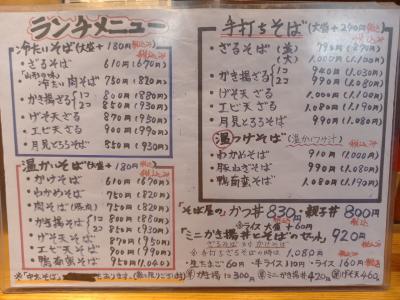 ランチメニュー
冷たいそば(大盛+180円 税込み)
・ざるそば 610円(670円)
「山形の味」
冷たい肉そば 750円(820円)
・かき揚ざる 1コ 800円(880円)
2コ 850円(930円)
・げそ天ざる 850円(930円)
・エビ天ざる 900円(990円)
・月見とろろそば 850円(930円)
温かいそば(大盛+180円 税込み)
・かけそば 610円(670円)
・わかめそば 750円(820円)
・肉そば(豚肉) 750円(820円)
・かき揚そば 1コ 800円(880円)
2コ 850円(930円)
・げそ天そば
・エビ天そば 900円(990円)
・鴨南蛮そば
手打ちそば(大盛+290円 税込み)
・ざるそば(並)
(大) 1.000円(1.100円)
・かき揚ざる 1コ 940円(1.030円)
2コ 980円(1.080円)
・げそ天ざる 1.000円(1.100円)
・エビ天ざる 1.080円(1.190円)
・月見とろろそば 990円(1.080円)
温つけそば(温かいつけ汁)
税込み
・わかめそば 910円(1.000円)
・豚ねぎそば 990円(1.080円)
・鴨南蛮そば 1.080円(1.190円)
「そば屋の」かつ丼 830円 親子丼 800円
※ライス大盛+60円
「ミニかき揚丼とそばのセット」920円
ざるそば又はかけそば
※手打ちざるそばは 1.080円
・生たまご 60円 ・半ライス 110円 ・ライス 160円
単 かき揚に 300円 単 ミニかき揚丼 420円 単 げそ天 460円